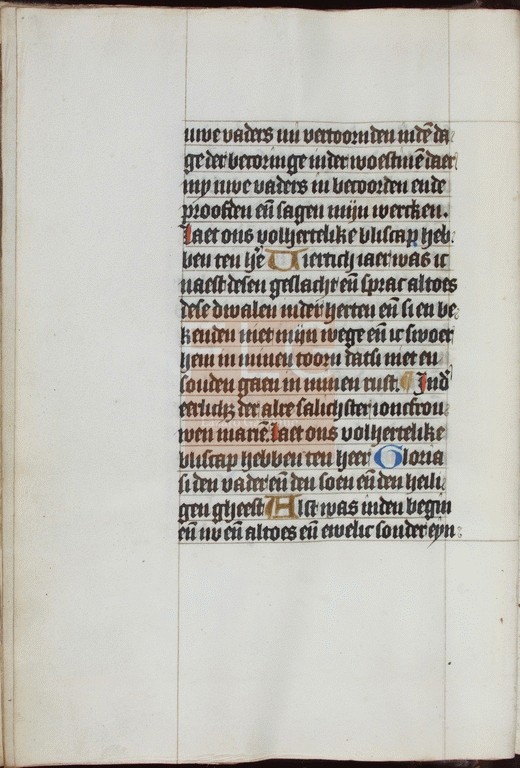 uwe vaders mi vertoornden indē da
ge der becoringe inder woestinē daer
my uwe vaders in becoorden ende
proofden eñ sagen mijn wercken.
Laet ons volhertelike bliscap heb
ben ten hē Viertich iaer was ic
naest desen geslacht eñ sprac altoes
dese dwalen inder herten eñ si en be
kenden niet mijn wege eñ ic swoer
hem in minen toorn datsi niet en
souden gaen in minen rust. Ind
eerlichz der alre salichster ioncfrou
wen mariē. Laet ons volhertelike
bliscap hebben ten heer Gloria
si den vader eñ den soen eñ den heili
gen gheest Alst was inden begin
eñ nv eñ altoes eñ ewelic sonder eyn